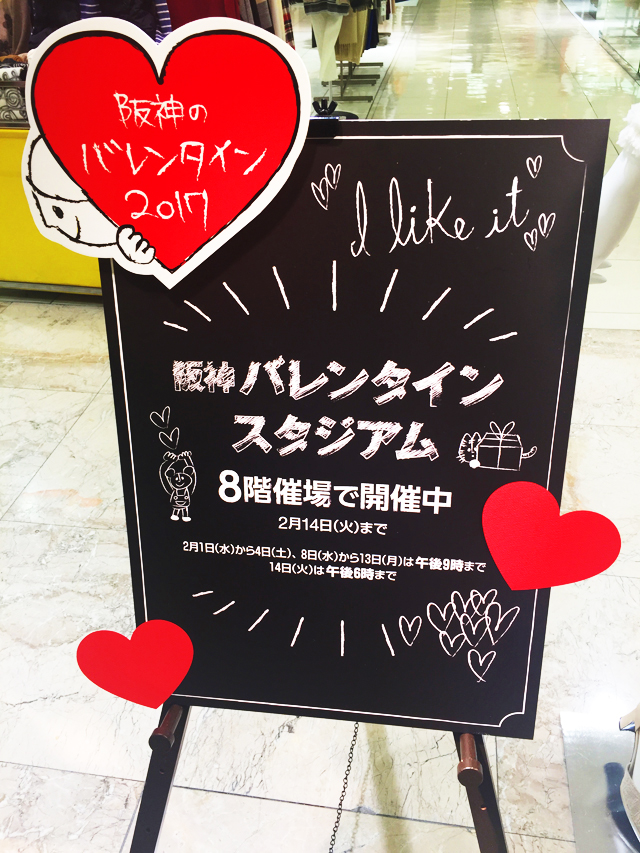 阪神の
バレンタイン
2017
I like it
阪神バレンタイン
スタジアム
8階催場で開催中
2月14日(火)まで
2月1日(水)から4日(土)、8日(水)から13日(月)は午後9時まで
14日(火)は午後6時まで